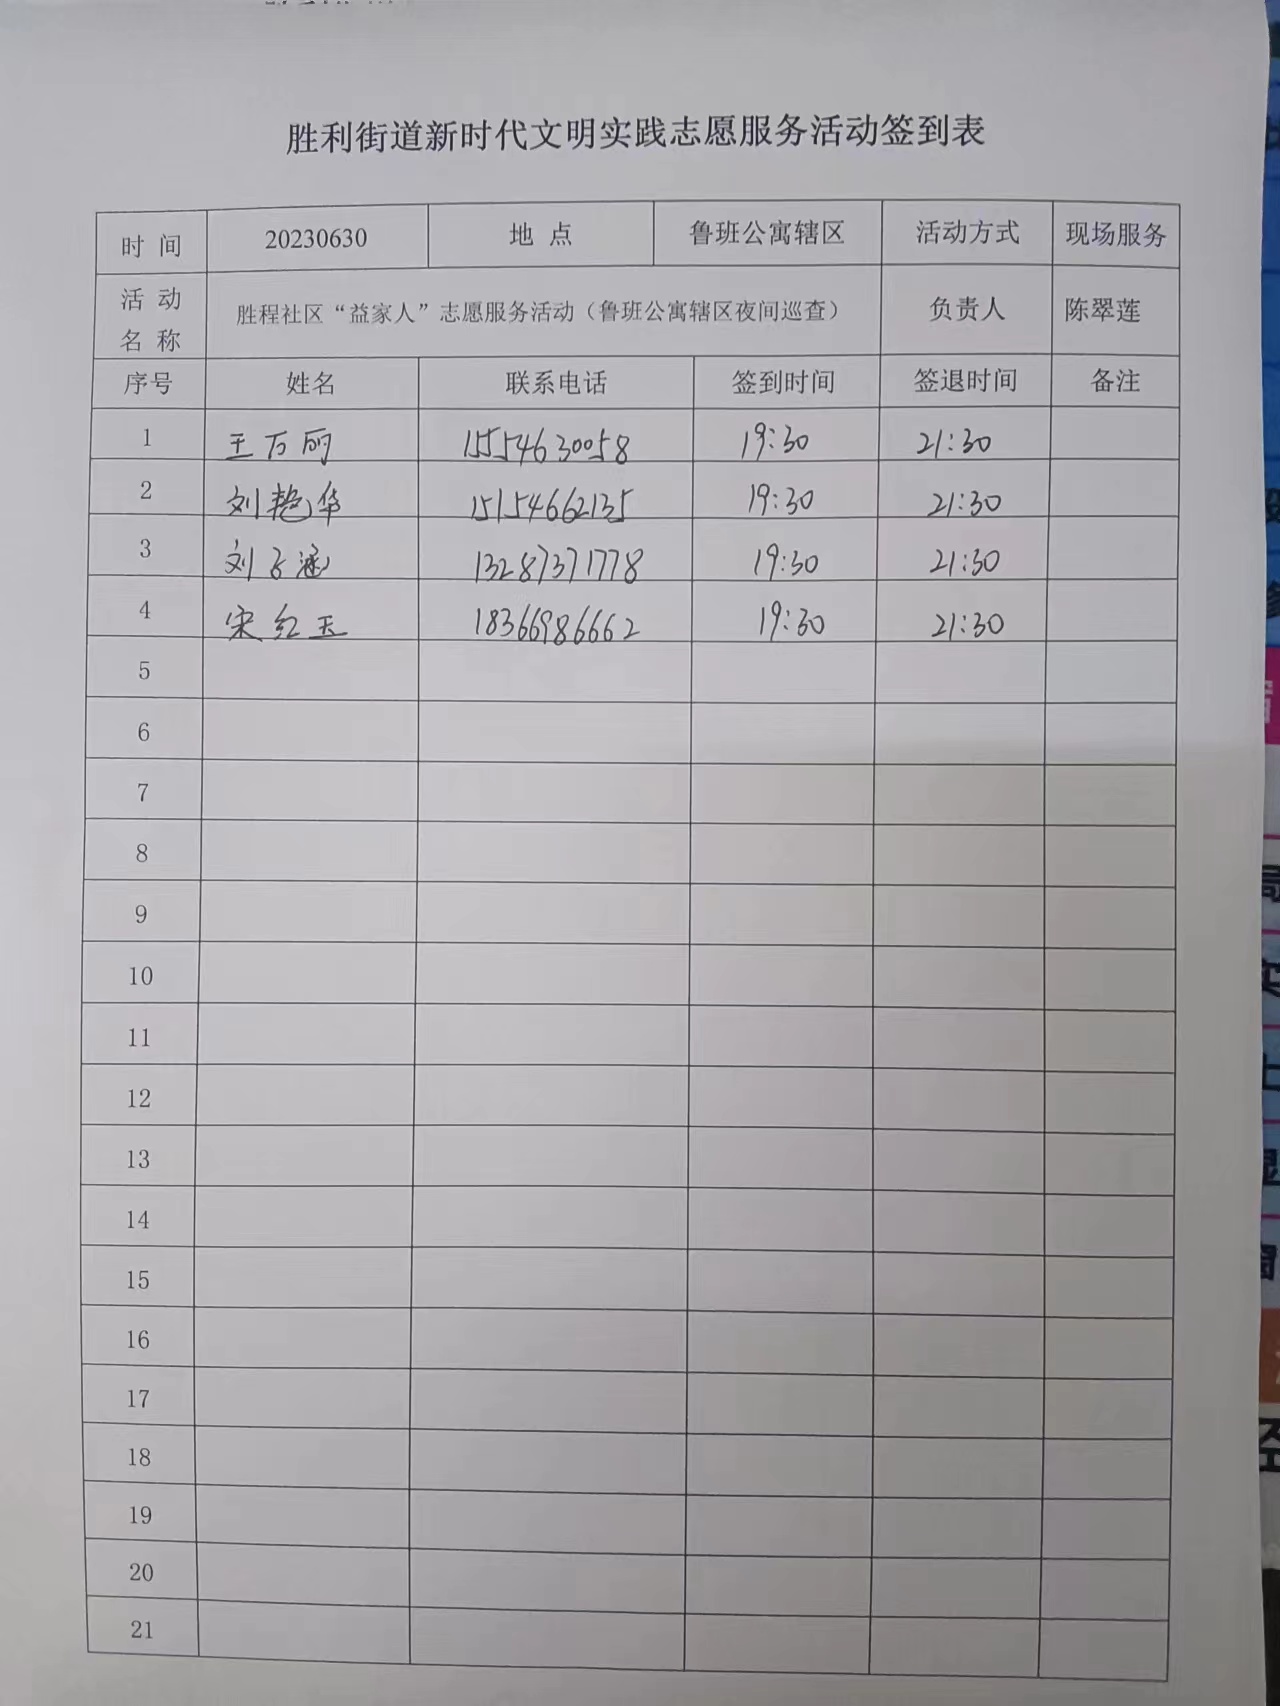 胜利街道新时代文明实践志愿服务活动签到表
时 间 20230630 地 点 鲁班公寓辖区 活动方式 现场服务
活 动 名 称 胜程社区“益家人”志愿服务活动（鲁班公寓辖区夜间巡查） 负责人 陈翠莲
序号 姓名 联系电话 签到时间 签退时间 备注
1 王万丽 15554630058 19:30 21:30
2 刘艳华 15154662135 19:30 21:30
3 刘子涵 13287371778 19:30 21:30
4 宋红玉 18366986662 19:30 21:30
5
6
7
8
9
10
11
12
13
14
15
16
17
18
19
20
21